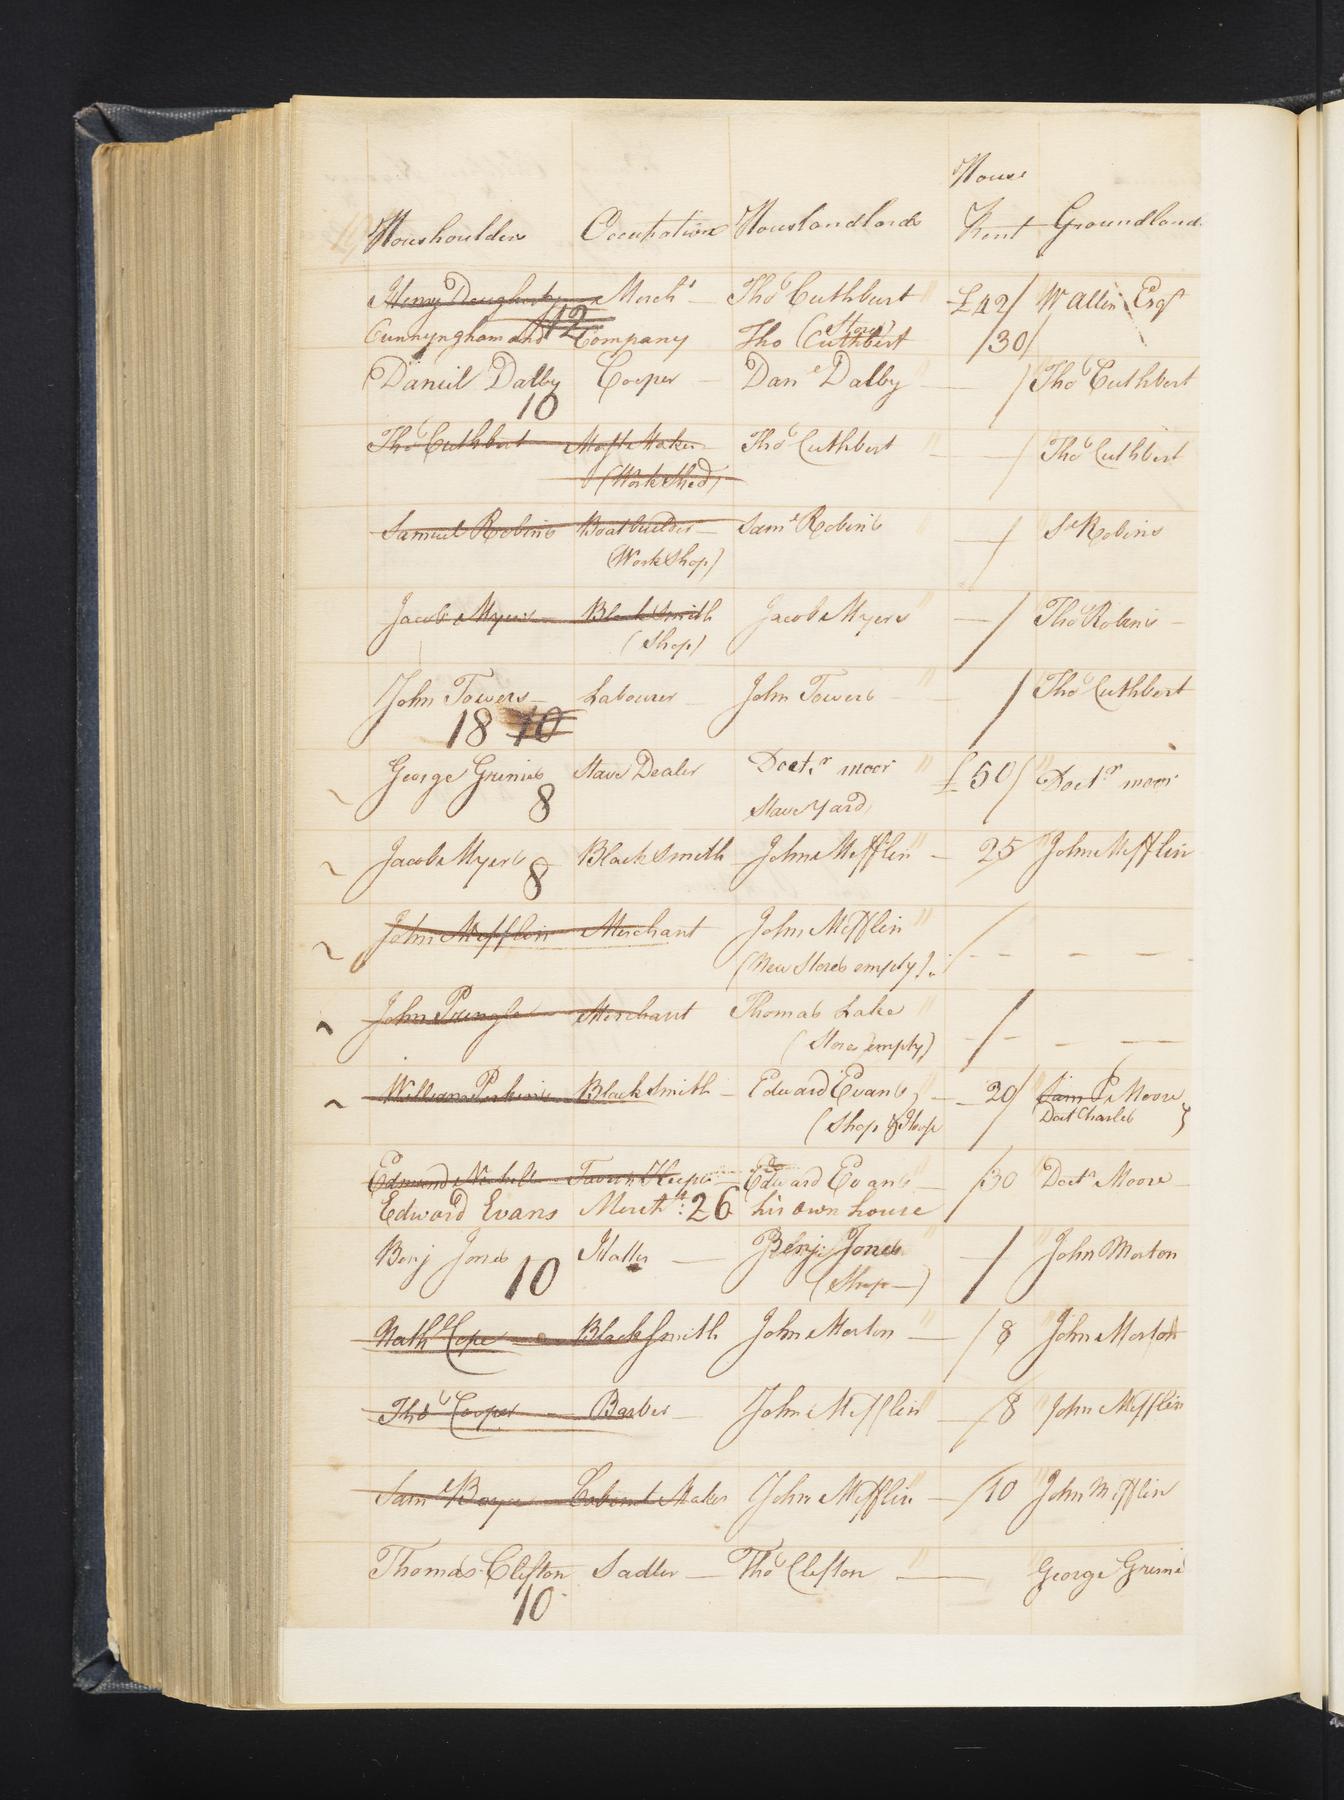 House
Houshoulders Occupation Houslandlords Rent Groundland
Henry Dougherty Mercht Thos Cuthburt £42/ W Allin Esqr
Cunnyngham and 12 Company Tho Cuthbert (Store) /30/
Daniel Dalby Cooper Danl Dalby / Thos Cuthbert
10
Thos Cuthbert Mast Maker Thos Cuthbert / Thos Cuthbert
(Work Shed)
Samuel Robins Boatbuilder Saml Robins / Sl Robins
(Work Shop)
Jacob Myers Black Smith Jacob Myers / Thos Robins
(Shop)
John Towers Labourer John Towers / Thos Cuthbert
18 10
George Grimes Stave Dealer Doctr moor £50/ Doctr moor
8 Stave Yard
Jacob Myers Black Smith John Mifflin 25 John Mifflin
8
John Mifflin Merchant John Mifflin
(New Stores empty)
John Pringle Merchant Thomas Lake
(Stores empty)
William Perkins Black Smith Edward Evans 20/ Sam P Moore
(Shop & House Doct Charles
Edmund Nichols Tavern Keeper Edward Evans /30 Doctr Moore
Edward Evans Mercht: 26 his own house
Benj Jones Hatter Benj: Jones / John Morton
10 (Shop)
Nathl Cope Black Smith John Morton /8 John Morton
Thos Cooper Barber John Mifflin /8 John Mifflin
Saml Boyer Cabinet Maker John Mifflin /10 John Mifflin
Thomas Clifton Sadler Thos Clifton George Grime
10